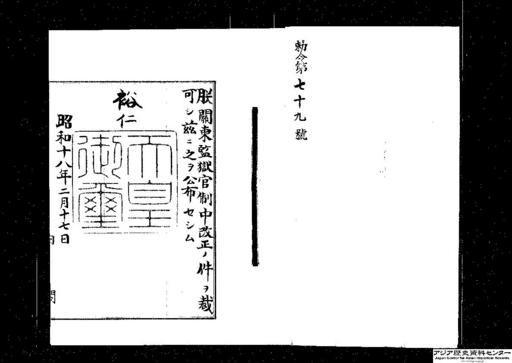 勅令第七十九號
朕關東監獄官制中改正ノ件ヲ裁
可シ茲ニ之ヲ公布セシム
裕仁
天皇
御璽
昭和十八年二月十七日
アジア歴史資料センター
Japan Center for Asian Historical Records